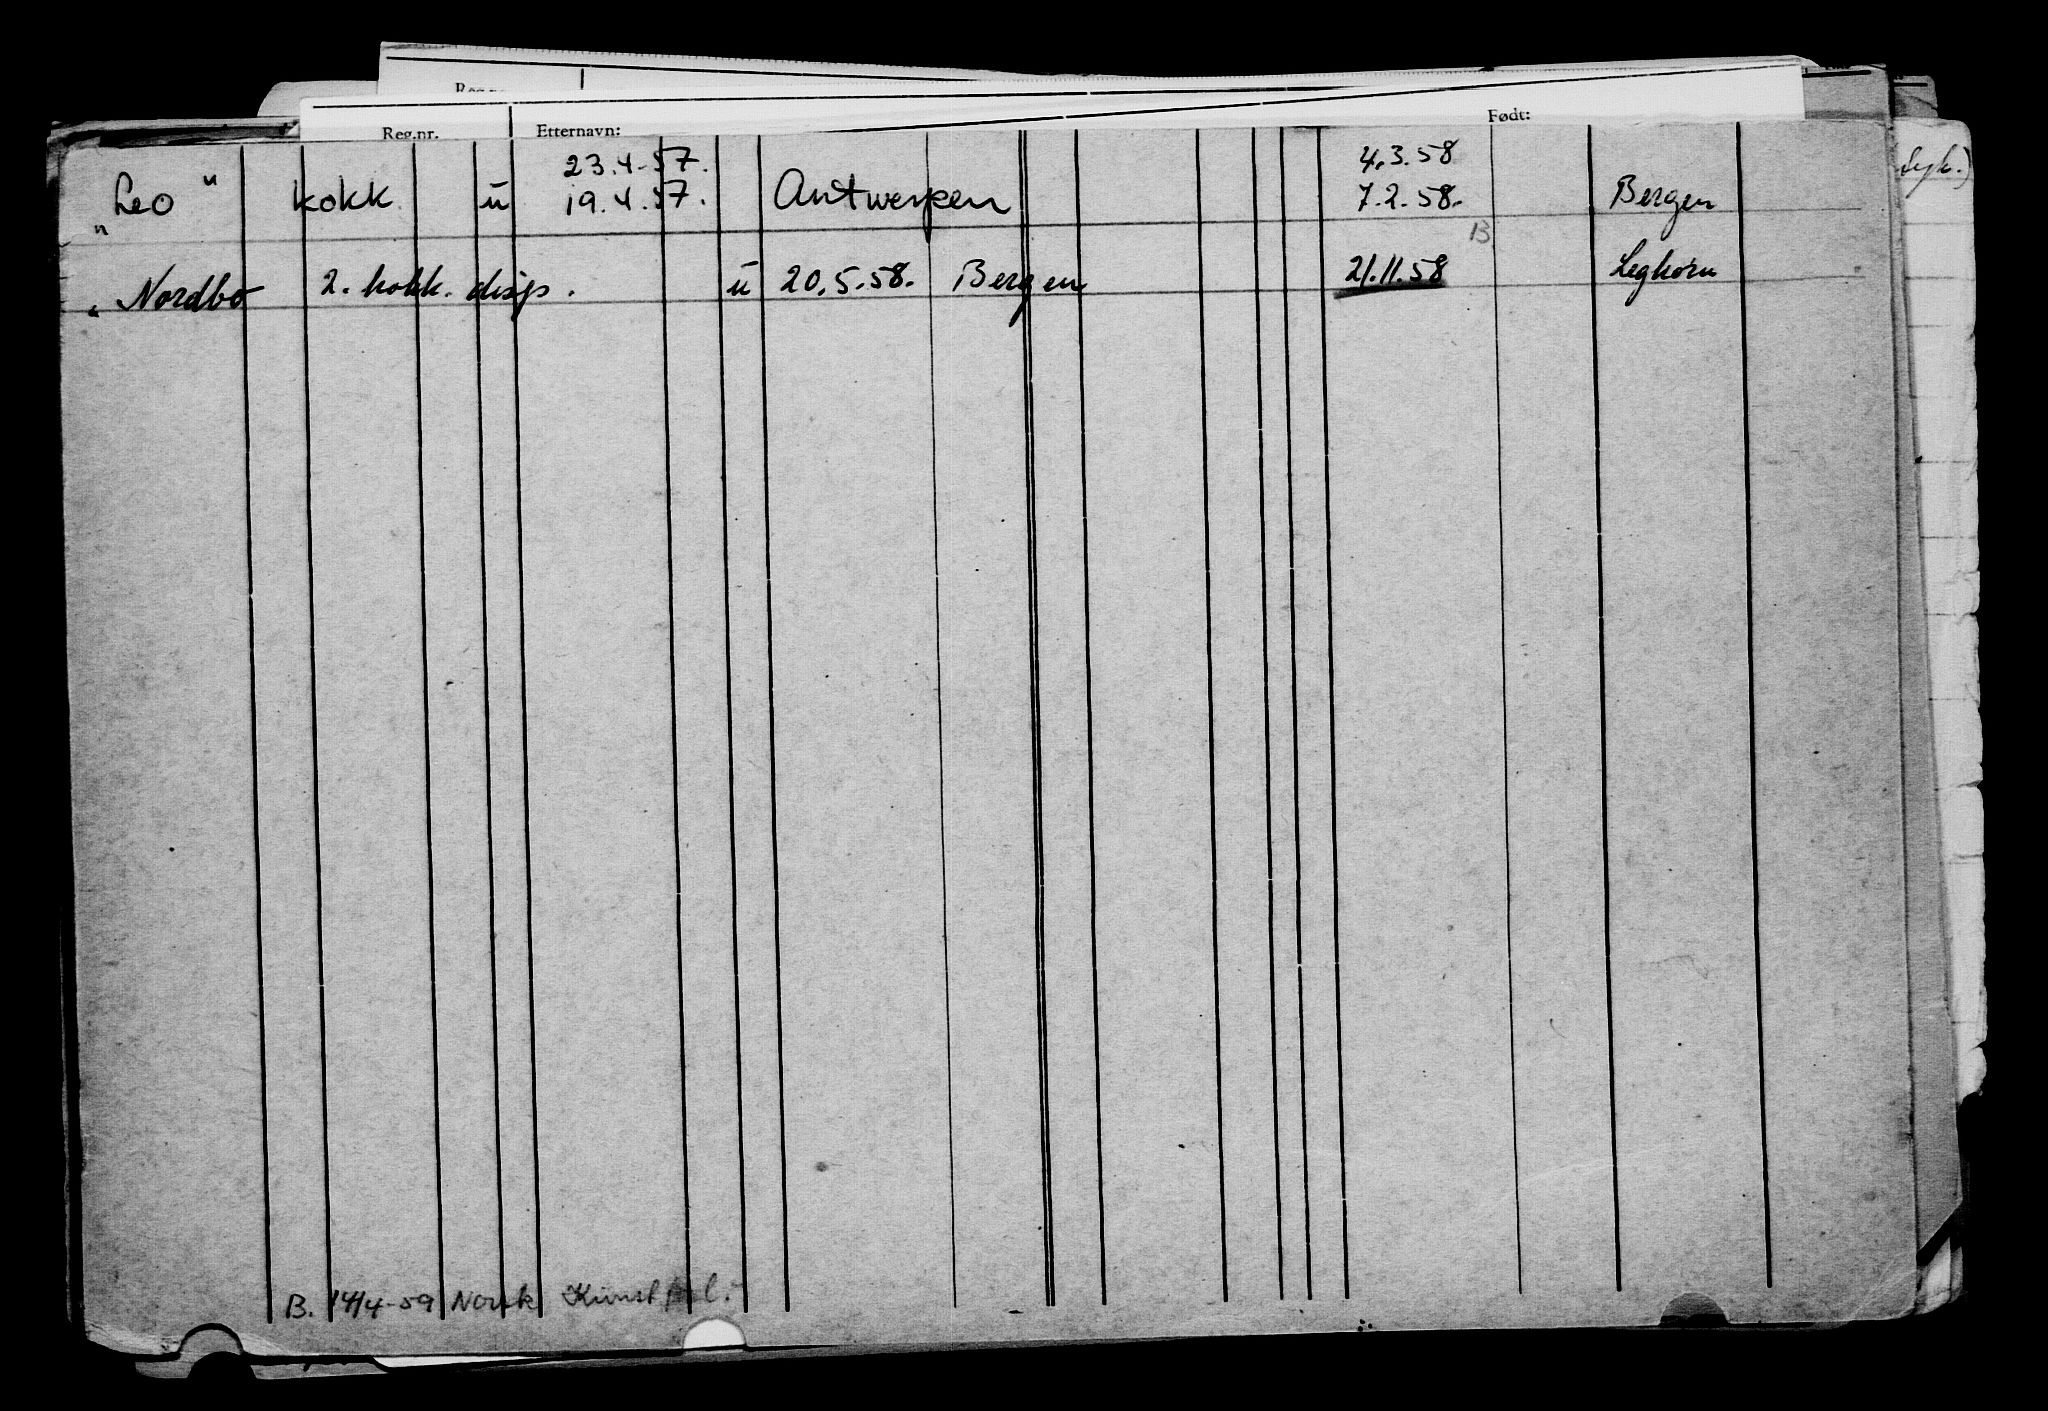 Reg.nr.
Reg.nr. Etternavn: Født:
23.4.57. 4.3.58
"Leo" kokk u 19.4.57. Antwerpen 7.2.58. Bergen
B
"Nordbo 2. kokk. disp. u 20.5.58. Bergen 21.11.58 Leghorn
B. 14/4-59 Norsk